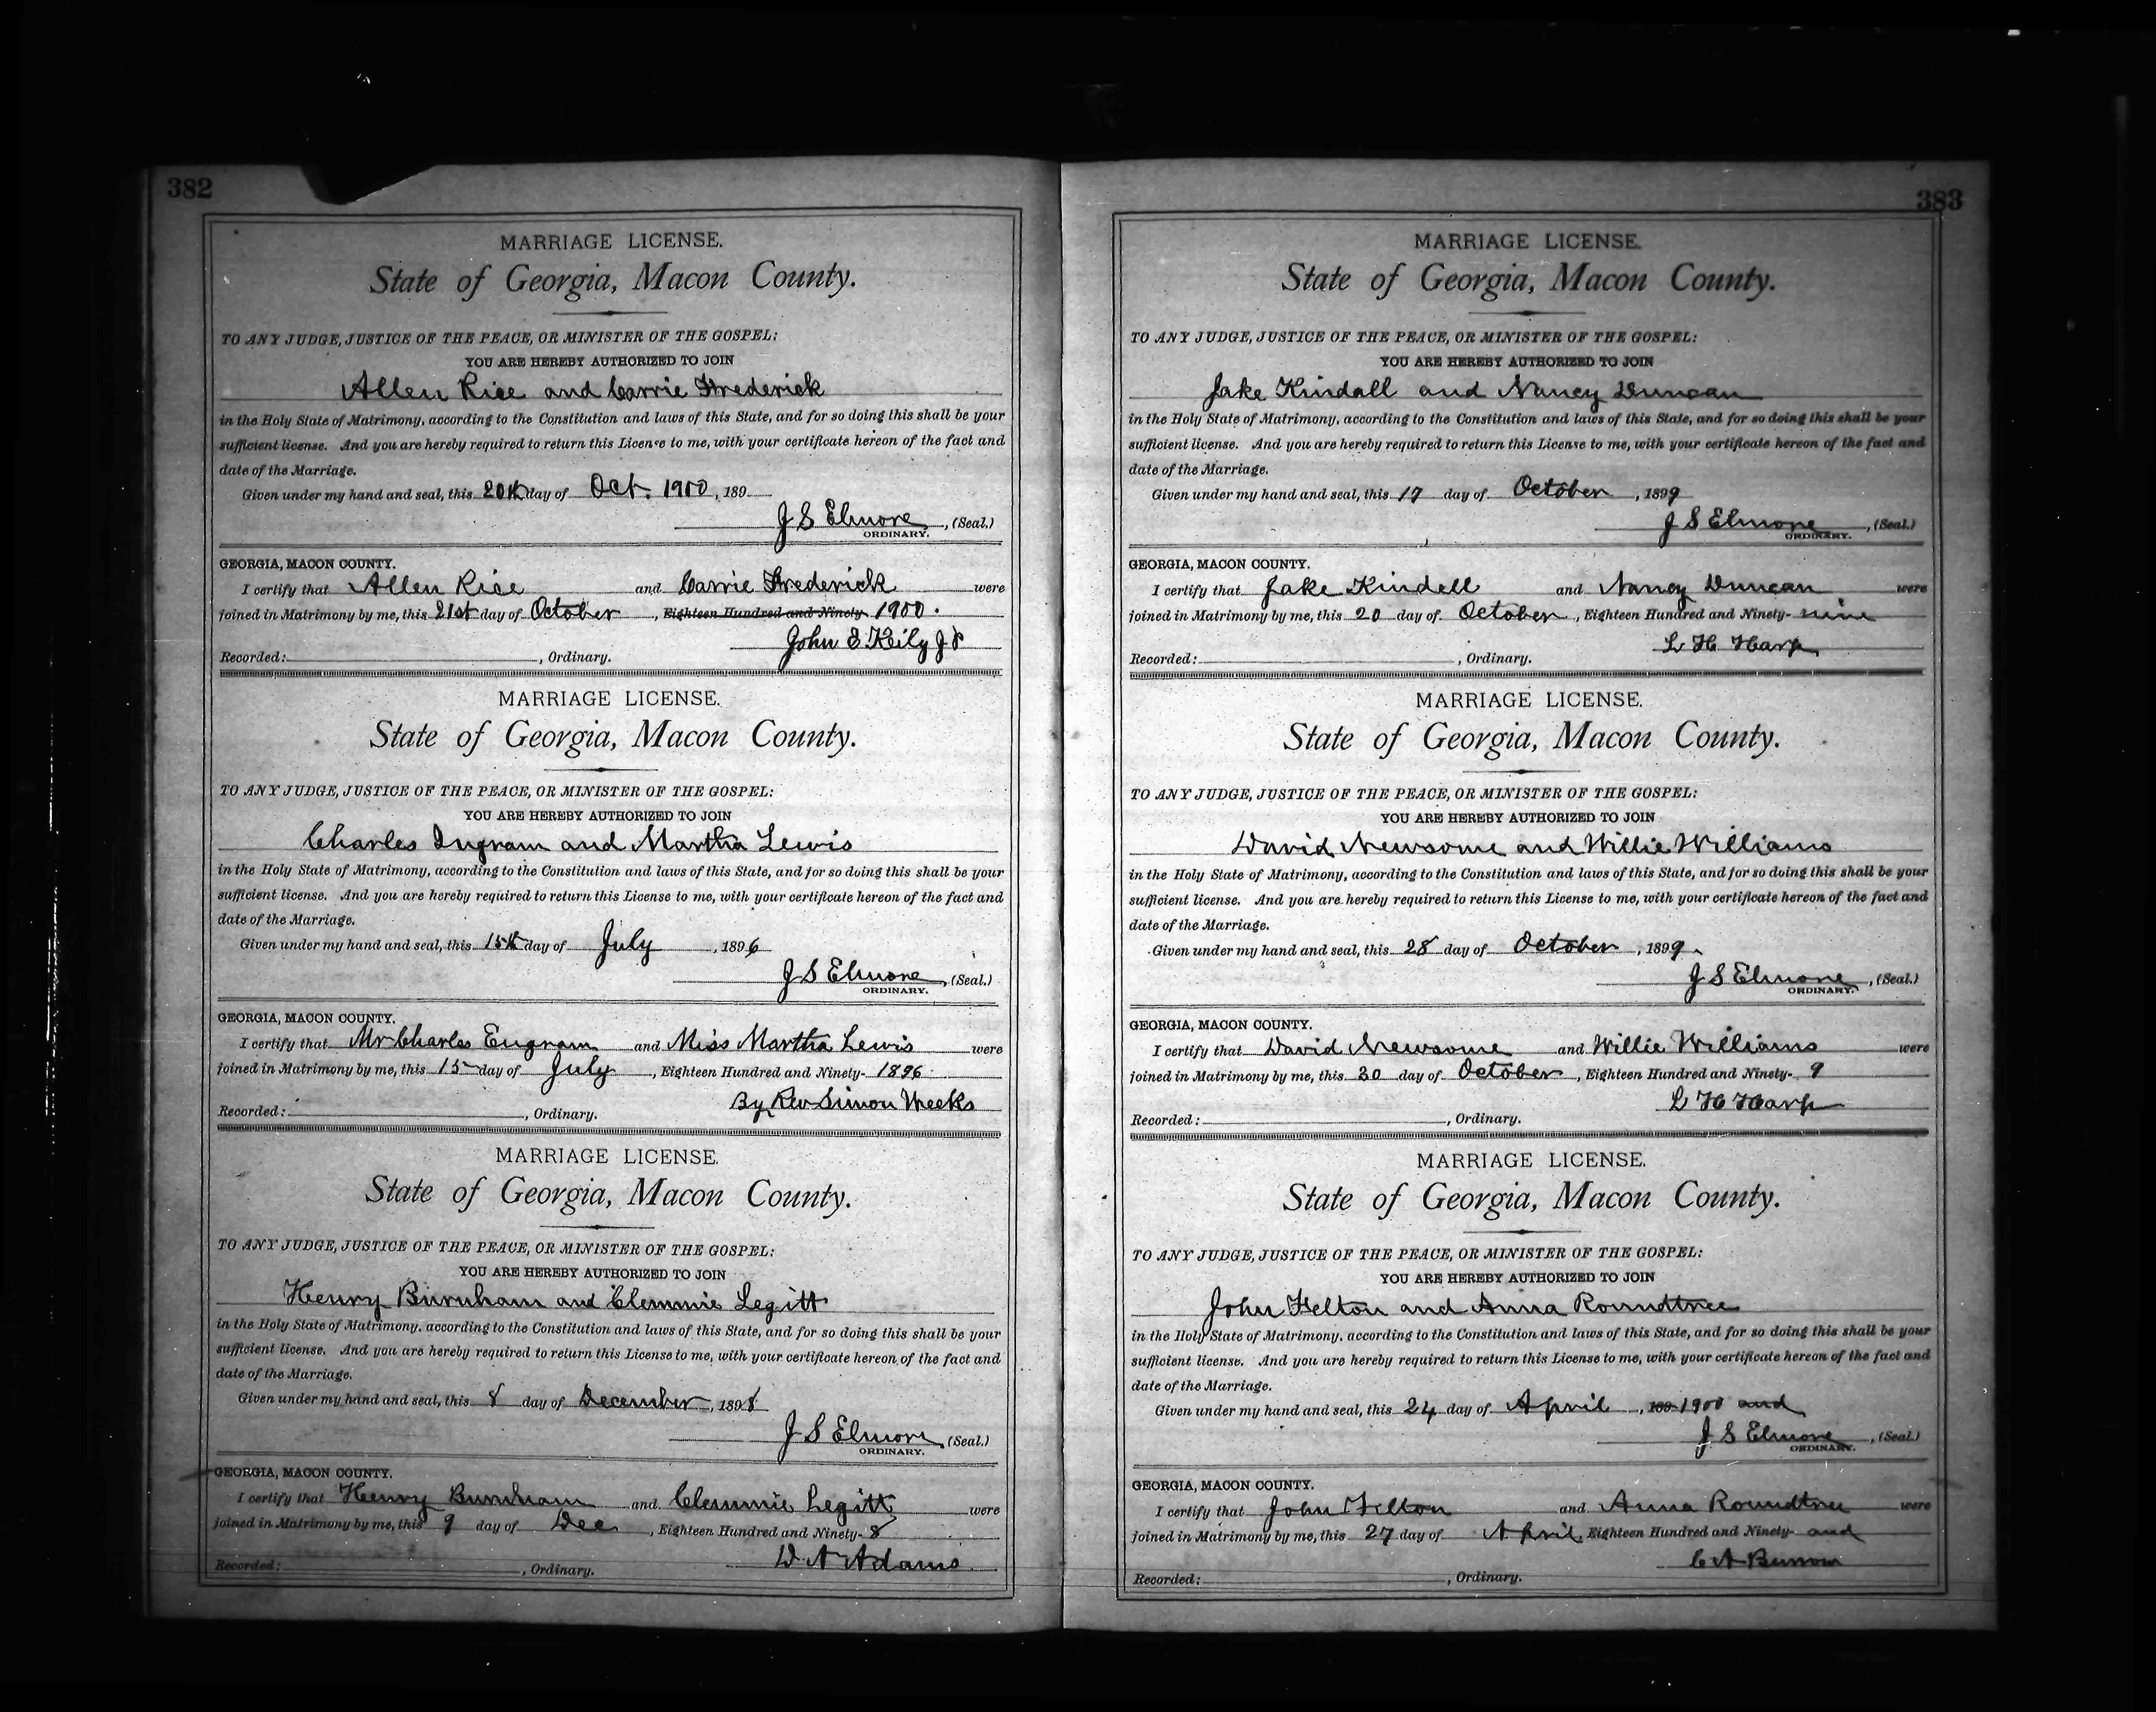 382
MARRIAGE LICENSE.
State of Georgia, Macon County.
TO ANY JUDGE, JUSTICE OF THE PEACE, OR MINISTER OF THE GOSPEL:
YOU ARE HEREBY AUTHORIZED TO JOIN
Allen Rice and Carrie Frederick
in the Holy State of Matrimony, according to the Constitution and laws of this State, and for so doing this shall be your
sufficient license. And you are hereby required to return this License to me, with your certificate hereon of the fact and
date of the Marriage.
Given under my hand and seal, this 20th day of Oct. 1900, 189
J S Elmore, (Seal.)
ORDINARY.
GEORGIA, MACON COUNTY.
I certify that Allen Rice and Carrie Frederick were
joined in Matrimony by me, this 21st day of October, Eighteen Hundred and Ninety- 1900.
John E Keily J P
Recorded: , Ordinary.
MARRIAGE LICENSE.
State of Georgia, Macon County.
TO ANY JUDGE, JUSTICE OF THE PEACE, OR MINISTER OF THE GOSPEL:
YOU ARE HEREBY AUTHORIZED TO JOIN
Charles Ingram and Martha Lewis
in the Holy State of Matrimony, according to the Constitution and laws of this State, and for so doing this shall be your
sufficient license. And you are hereby required to return this License to me, with your certificate hereon of the fact and
date of the Marriage.
Given under my hand and seal, this 15th day of July, 1896
J S Elmore, (Seal.)
ORDINARY.
GEORGIA, MACON COUNTY.
I certify that Mr Charles Engram and Miss Martha Lewis were
joined in Matrimony by me, this 15 day of July, Eighteen Hundred and Ninety- 1896
By Rev Simon Weeks
Recorded: , Ordinary.
MARRIAGE LICENSE.
State of Georgia, Macon County.
TO ANY JUDGE, JUSTICE OF THE PEACE, OR MINISTER OF THE GOSPEL:
YOU ARE HEREBY AUTHORIZED TO JOIN
Henry Burnham and Clemmie Legitt
in the Holy State of Matrimony, according to the Constitution and laws of this State, and for so doing this shall be your
sufficient license. And you are hereby required to return this License to me, with your certificate hereon of the fact and
date of the Marriage.
Given under my hand and seal, this 8 day of December, 1898
J S Elmore, (Seal.)
ORDINARY.
GEORGIA, MACON COUNTY.
I certify that Henry Burnham and Clemmie Legitt were
joined in Matrimony by me, this 9 day of Dec, Eighteen Hundred and Ninety- 8
D A Adams
Recorded: , Ordinary.
383
MARRIAGE LICENSE.
State of Georgia, Macon County.
TO ANY JUDGE, JUSTICE OF THE PEACE, OR MINISTER OF THE GOSPEL:
YOU ARE HEREBY AUTHORIZED TO JOIN
Jake Kindall and Nancy Duncan
in the Holy State of Matrimony, according to the Constitution and laws of this State, and for so doing this shall be your
sufficient license. And you are hereby required to return this License to me, with your certificate hereon of the fact and
date of the Marriage.
Given under my hand and seal, this 17 day of October, 1899
J S Elmore, (Seal.)
ORDINARY.
GEORGIA, MACON COUNTY.
I certify that Jake Kindell and Nancy Duncan were
joined in Matrimony by me, this 20 day of October, Eighteen Hundred and Ninety- nine
L H Harp
Recorded: , Ordinary.
MARRIAGE LICENSE.
State of Georgia, Macon County.
TO ANY JUDGE, JUSTICE OF THE PEACE, OR MINISTER OF THE GOSPEL:
YOU ARE HEREBY AUTHORIZED TO JOIN
David Newsome and Willie Williams
in the Holy State of Matrimony, according to the Constitution and laws of this State, and for so doing this shall be your
sufficient license. And you are hereby required to return this License to me, with your certificate hereon of the fact and
date of the Marriage.
Given under my hand and seal, this 28 day of October, 1899.
J S Elmore, (Seal.)
ORDINARY.
GEORGIA, MACON COUNTY.
I certify that David Newsome and Willie Williams were
joined in Matrimony by me, this 30 day of October, Eighteen Hundred and Ninety- 9
L H Harp
Recorded: , Ordinary.
MARRIAGE LICENSE.
State of Georgia, Macon County.
TO ANY JUDGE, JUSTICE OF THE PEACE, OR MINISTER OF THE GOSPEL:
YOU ARE HEREBY AUTHORIZED TO JOIN
John Felton and Anna Roundtree
in the Holy State of Matrimony, according to the Constitution and laws of this State, and for so doing this shall be your
sufficient license. And you are hereby required to return this License to me, with your certificate hereon of the fact and
date of the Marriage.
Given under my hand and seal, this 24 day of April, 189 1900 and
J S Elmore, (Seal.)
ORDINARY.
GEORGIA, MACON COUNTY.
I certify that John Felton and Anna Roundtree were
joined in Matrimony by me, this 27 day of April Eighteen Hundred and Ninety- and
C A Burrow
Recorded: , Ordinary.